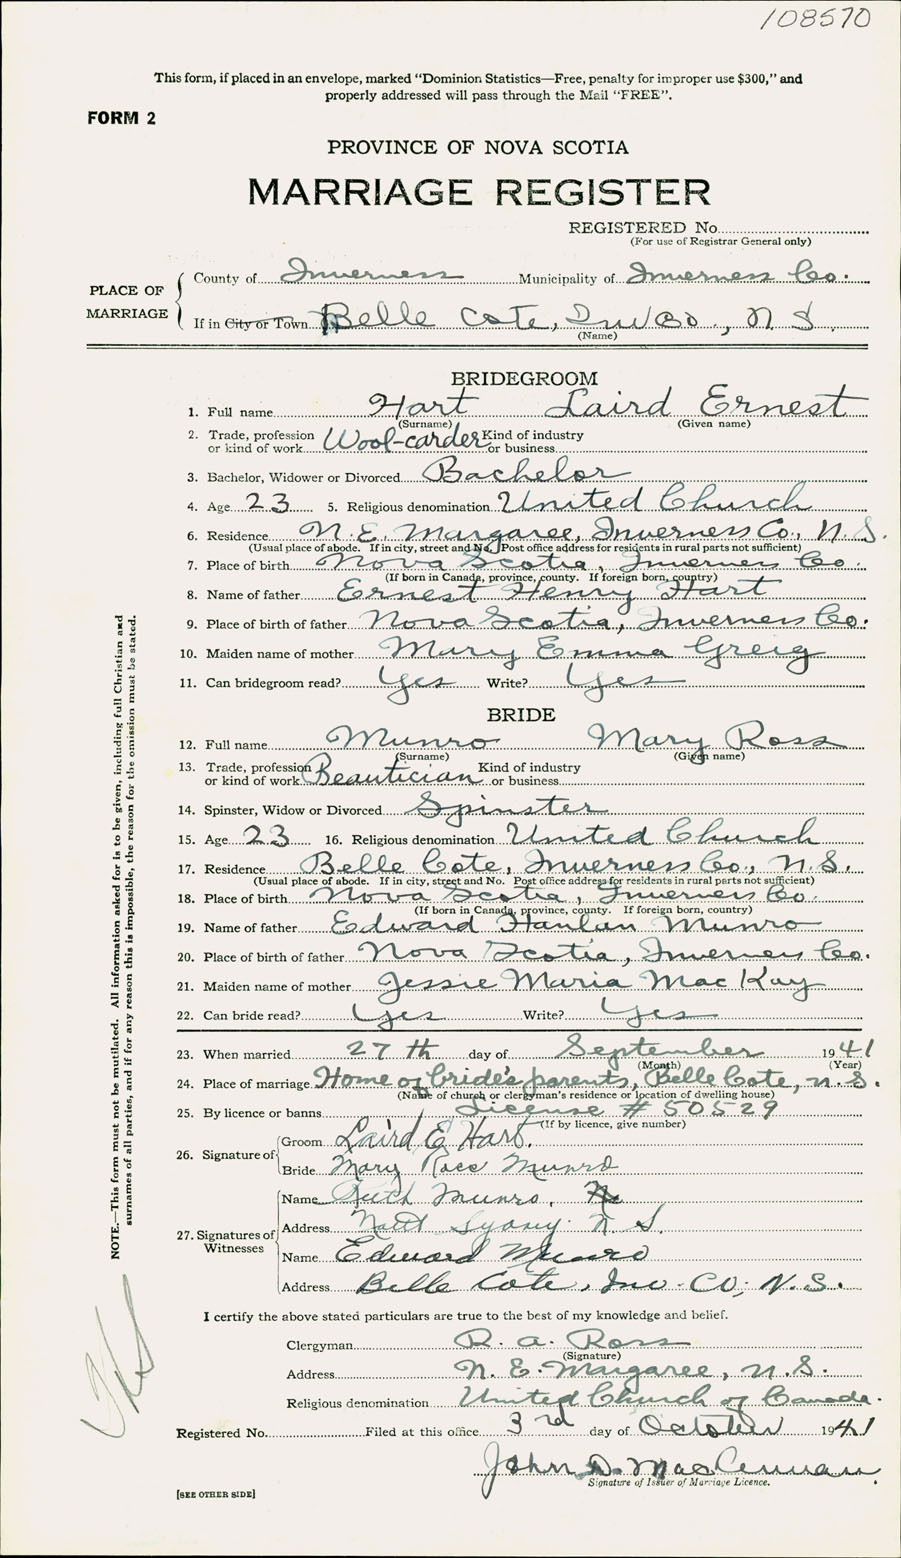 108570
This form, if placed in an envelope, marked "Dominion Statistics—Free, penalty for improper use $300," and
properly addressed will pass through the Mail "FREE".
FORM 2
PROVINCE OF NOVA SCOTIA
MARRIAGE REGISTER
REGISTERED No.
(For use of Registrar General only)
PLACE OF MARRIAGE
County of Inverness Municipality of Inverness Co.
If in City or Town Belle Cote, Inv Co, N S.
(Name)
BRIDEGROOM
1. Full name Hart Laird Ernest
(Surname) (Given name)
2. Trade, profession or kind of work Wool-carder Kind of industry or business
3. Bachelor, Widower or Divorced Bachelor
4. Age 23 5. Religious denomination United Church
6. Residence N. E. Margaree, Inverness Co., N. S.
(Usual place of abode. If in city, street and No. Post office address for residents in rural parts not sufficient)
7. Place of birth Nova Scotia, Inverness Co.
(If born in Canada, province, county. If foreign born, country)
8. Name of father Ernest Henry Hart
9. Place of birth of father Nova Scotia, Inverness Co.
10. Maiden name of mother Mary Emma Greig
11. Can bridegroom read? Yes Write? Yes
BRIDE
12. Full name Munro Mary Ross
(Surname) (Given name)
13. Trade, profession or kind of work Beautician Kind of industry or business
14. Spinster, Widow or Divorced Spinster
15. Age 23 16. Religious denomination United Church
17. Residence Belle Cote, Inverness Co., N. S.
(Usual place of abode. If in city, street and No. Post office address for residents in rural parts not sufficient)
18. Place of birth Nova Scotia, Inverness Co.
(If born in Canada, province, county. If foreign born, country)
19. Name of father Edward Hanlan Munro
20. Place of birth of father Nova Scotia, Inverness Co.
21. Maiden name of mother Jessie Maria MacKay
22. Can bride read? Yes Write? Yes
23. When married 27 th day of September 1941
(Month) (Year)
24. Place of marriage Home of bride's parents, Belle Cote, N. S.
(Name of church or clergyman's residence or location of dwelling house)
25. By licence or banns License # 50529
(If by licence, give number)
26. Signature of
Groom Laird E Hart.
Bride Mary Ross Munro
27. Signatures of Witnesses
Name Ruth Munro.
Address N S
Name Edward Munro
Address Belle Cote, Inv. Co; N. S.
I certify the above stated particulars are true to the best of my knowledge and belief.
Clergyman R. A. Ross
(Signature)
Address N. E. Margaree, N. S.
Religious denomination United Church of Canada.
Registered No. Filed at this office 3rd day of October 1941
John D. MacLennan.
Signature of Issuer of Marriage Licence.
[SEE OTHER SIDE]
NOTE.—This form must not be mutilated. All information asked for is to be given, including full Christian and
surnames of all parties, and if for any reason this is impossible, the reason for the omission must be stated.